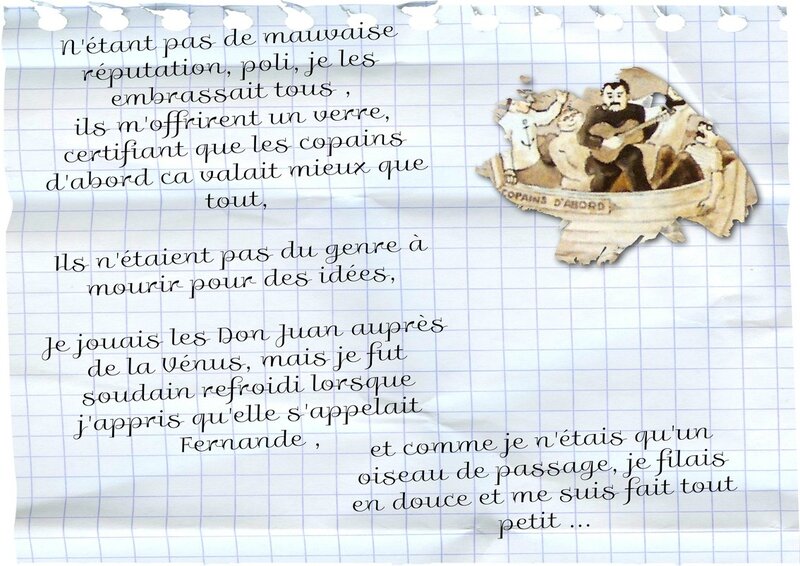 N'étant pas de mauvaise
réputation, poli, je les
embrassait tous ,
ils m'offrirent un verre,
certifiant que les copains
d'abord ca valait mieux que
tout,
COPAINS D'ABORD
Ils n'étaient pas du genre à
mourir pour des idées,
Je jouais les Don Juan auprès
de la Vénus, mais je fut
soudain refroidi lorsque
j'appris qu'elle s'appelait
Fernande ,
et comme je n'étais qu'un
oiseau de passage, je filais
en douce et me suis fait tout
petit ...